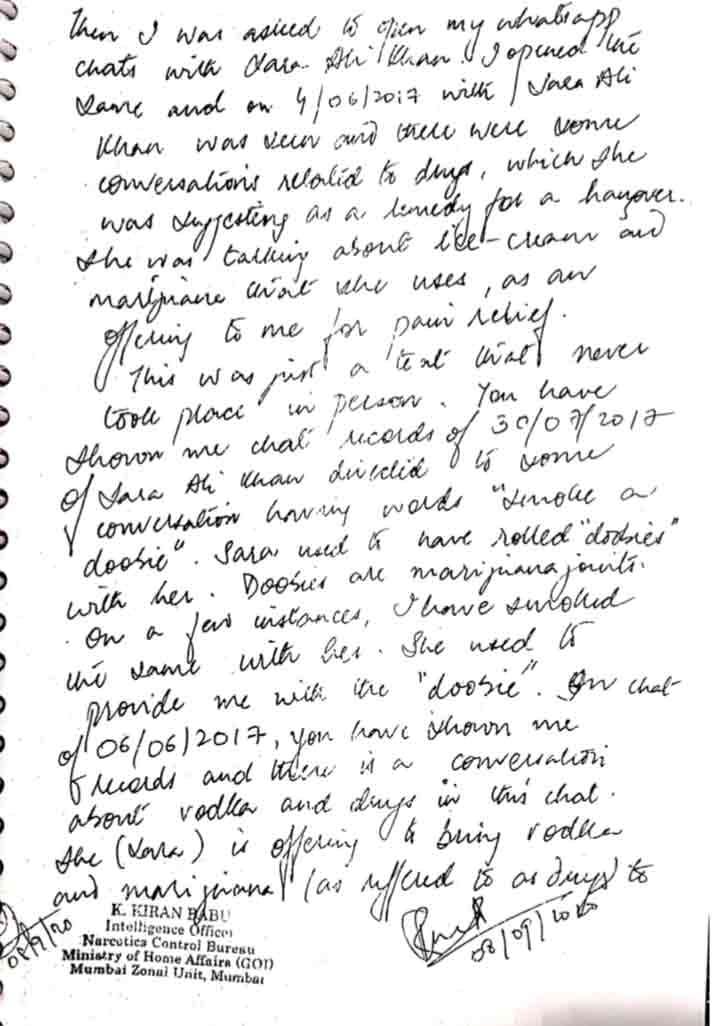 Then I was asked to open my whatsapp
chats with Sara Ali Khan. I opened the
same and on 4/06/2017 with Sara Ali
Khan was seen and there were some
conversations related to drugs, which she
was suggesting as a remedy for a hangover.
She was talking about ice-cream and
marijuana that she uses, as an
offering to me for pain relief.
This was just a text that never
took place in person. You have
shown me chat records of 30/07/2017
of Sara Ali Khan directed to some
conversation having words "smoke a
doobie". Sara used to have rolled "doobies"
with her. Doobies are marijuana joints.
On a few instances, I have smoked
the same with her. She used to
provide me with the "doobie". In chat
of 06/06/2017, you have shown me
records and there is a conversation
about vodka and drugs in this chat.
She (Sara) is offering to bring vodka
and marijuana (as reffered to as drugs) to
K. KIRAN BABU
Intelligence Officer
Narcotics Control Bureau
Ministry of Home Affairs (GOI)
Mumbai Zonal Unit, Mumbai
08/9/20
08/09/2020